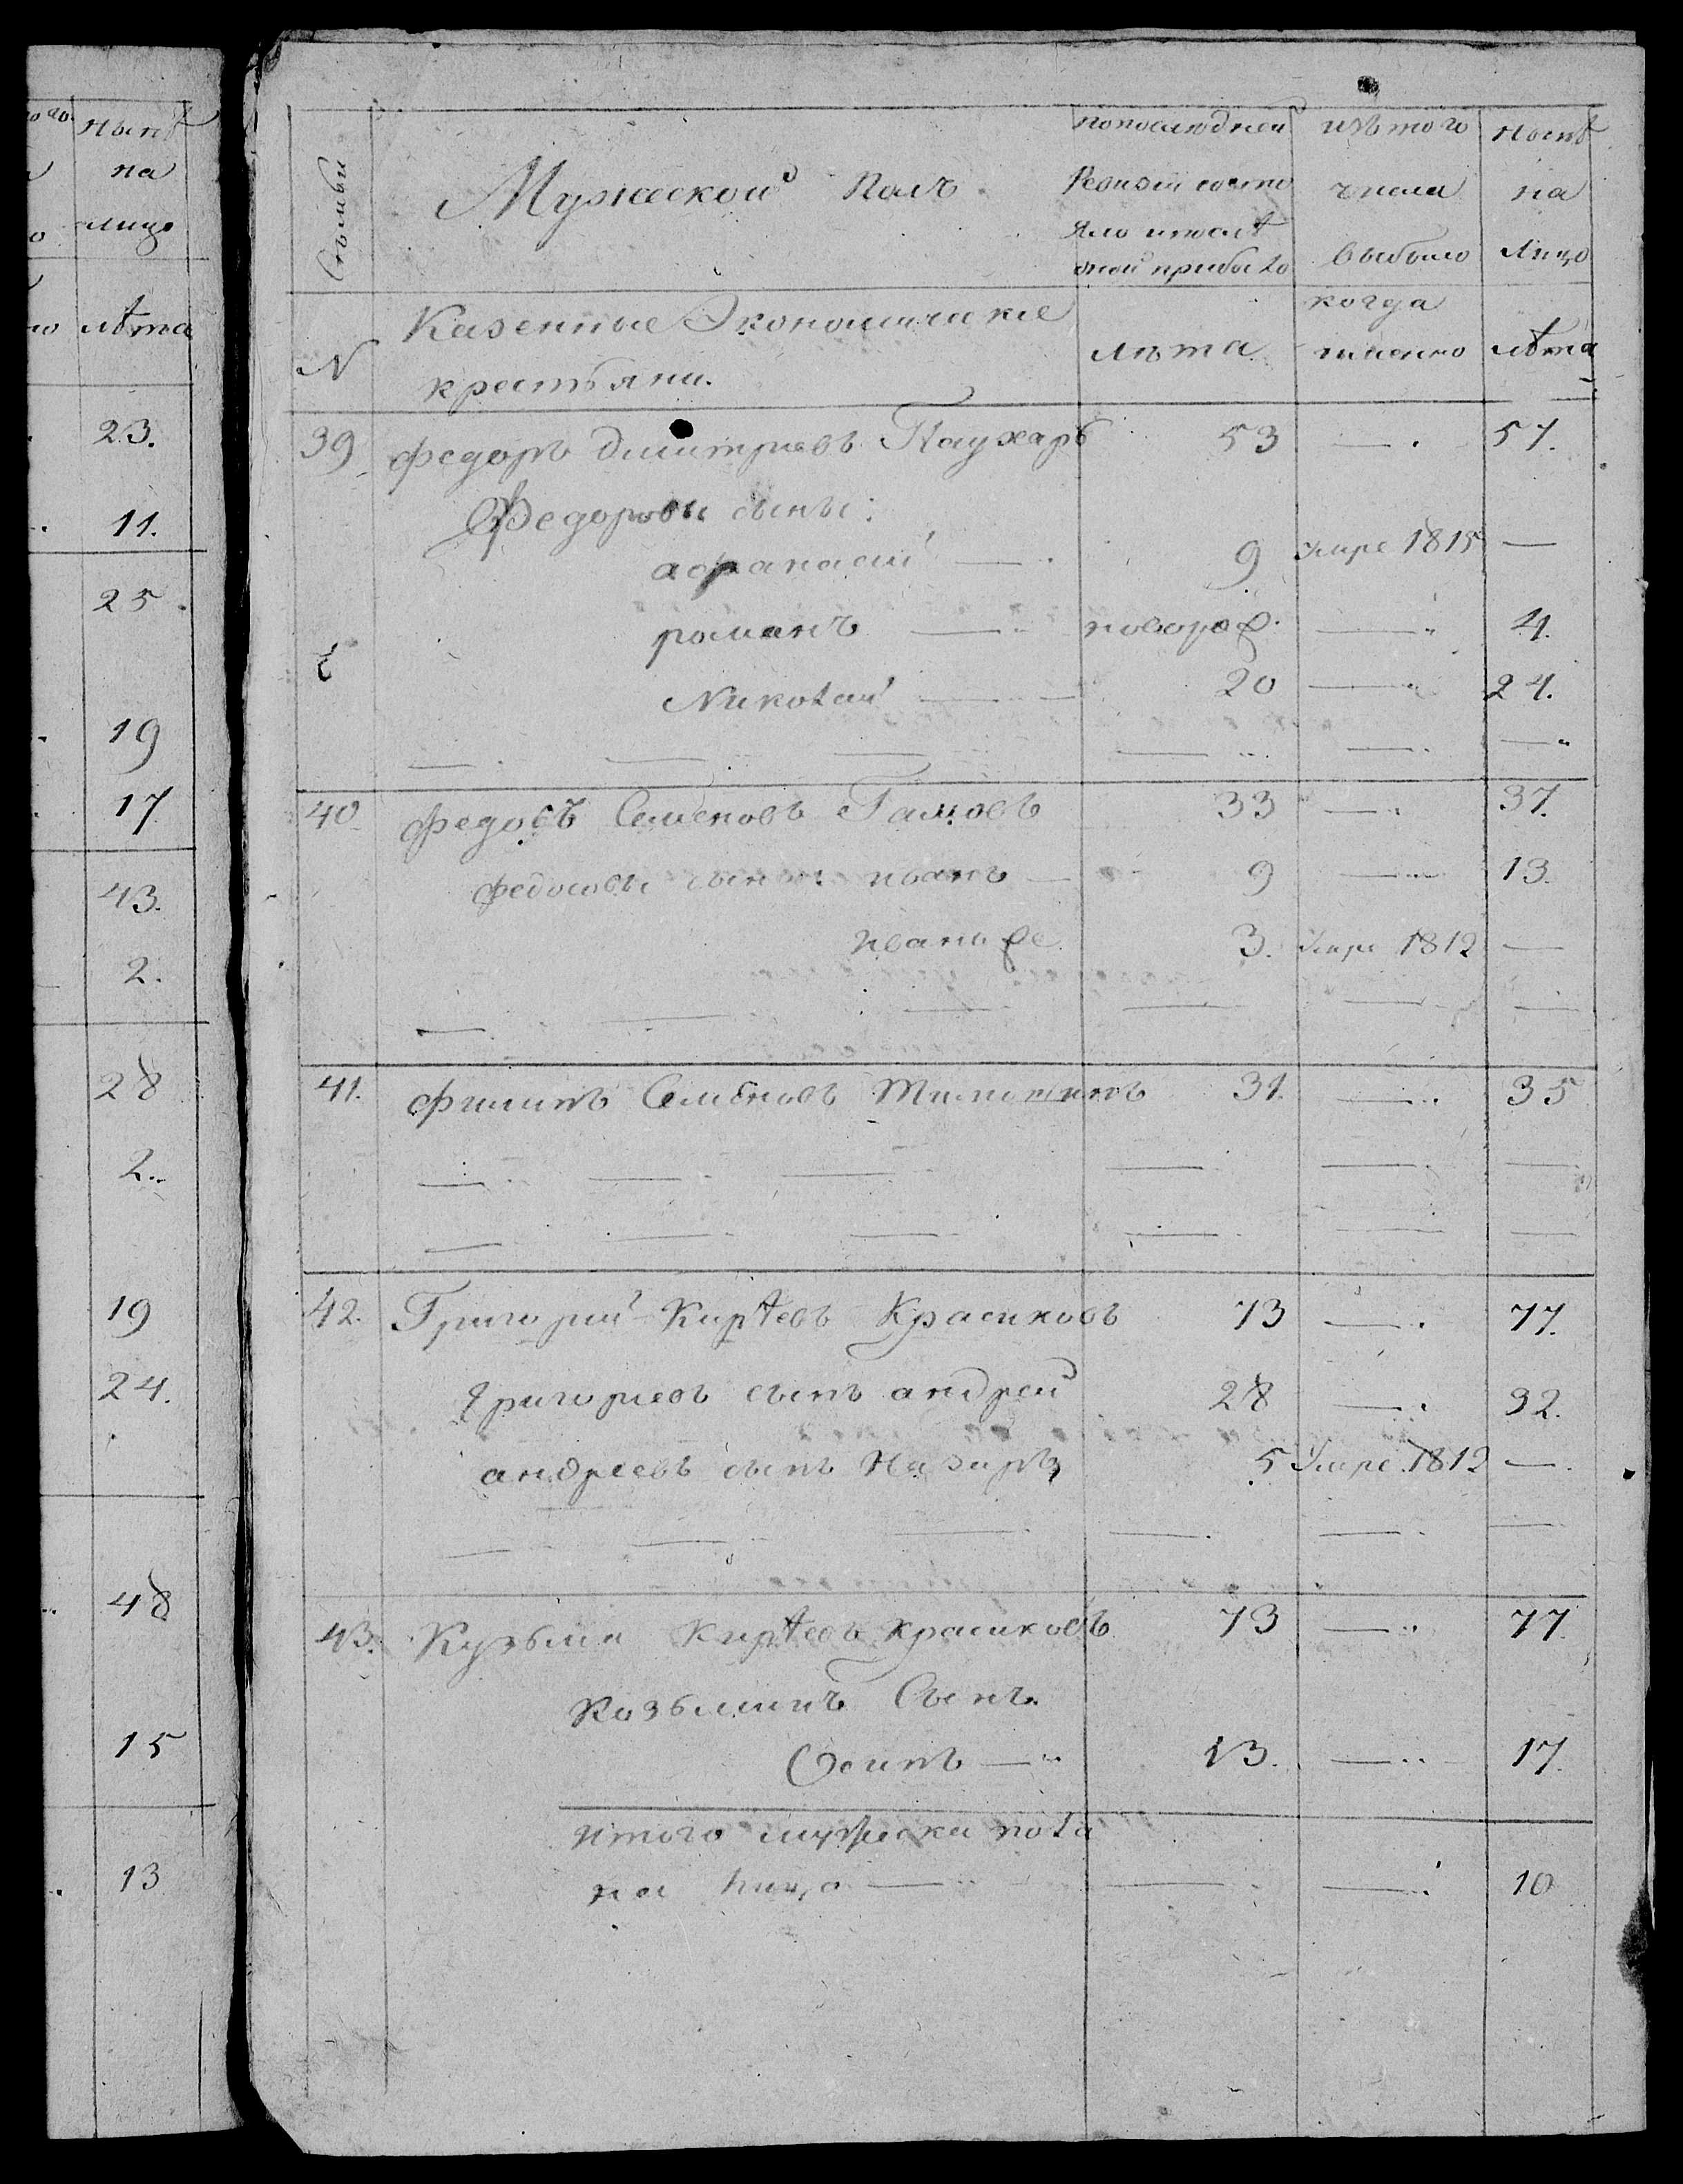 ныне
на
лицо
лѣта
23.
11.
25.
19
17
43.
2.
28
2.
19
24.
48
15
13
Семьи
Мужеской Полъ
попоследней
Ревизiи состо
яло ипослѣ
оной прибыло
изъ того
числа
выбыло
нынѣ
на
Лицо
N
Казенные Экономическiе
крестьяни.
лѣта
когда
имянно
лѣта
39 Федоръ дмитриевъ 53 — 57.
Федоровы сыны:
афанасий — 9 умре 1815 —
романъ — новорож. — 4.
Николай — 20 — 24.
40 Федосъ Семеновъ Гамовъ 33 — 37.
федосовы сыны: иванъ — 9 — 13.
иванъ же 3. Умре 1812 —
41. Филипъ Семеновъ 31. — 35
42. Григорий Кирѣевъ Красиковъ 73 — 77.
Григорьевъ сынъ андрей 28 — 32.
андреевъ сынъ Назаръ 5 Умре 1812 —
43. Кузьма Кирѣевъ Красиковъ 73 — 77.
Козьминъ Сынъ
Осипъ — 13. — 17.
Итого мужеска пола
на лицо — — — 10